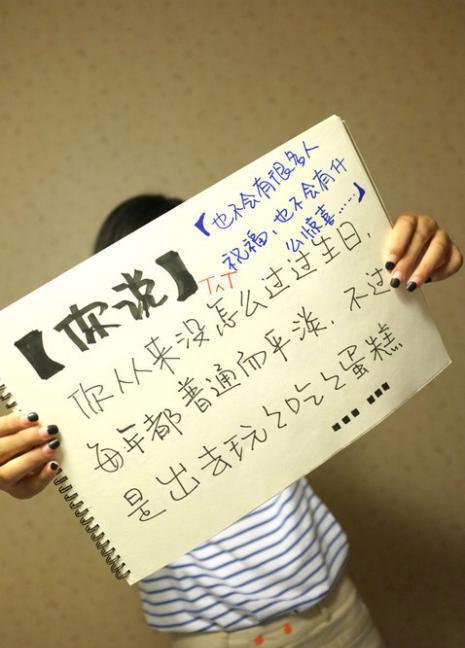 【也不会有很多人
祝福，也不会有什
么惊喜……】
【你说】
T^T
你从来没怎么过过生日，
每年都普通而平淡，不过
是出去玩々吃々蛋糕
……